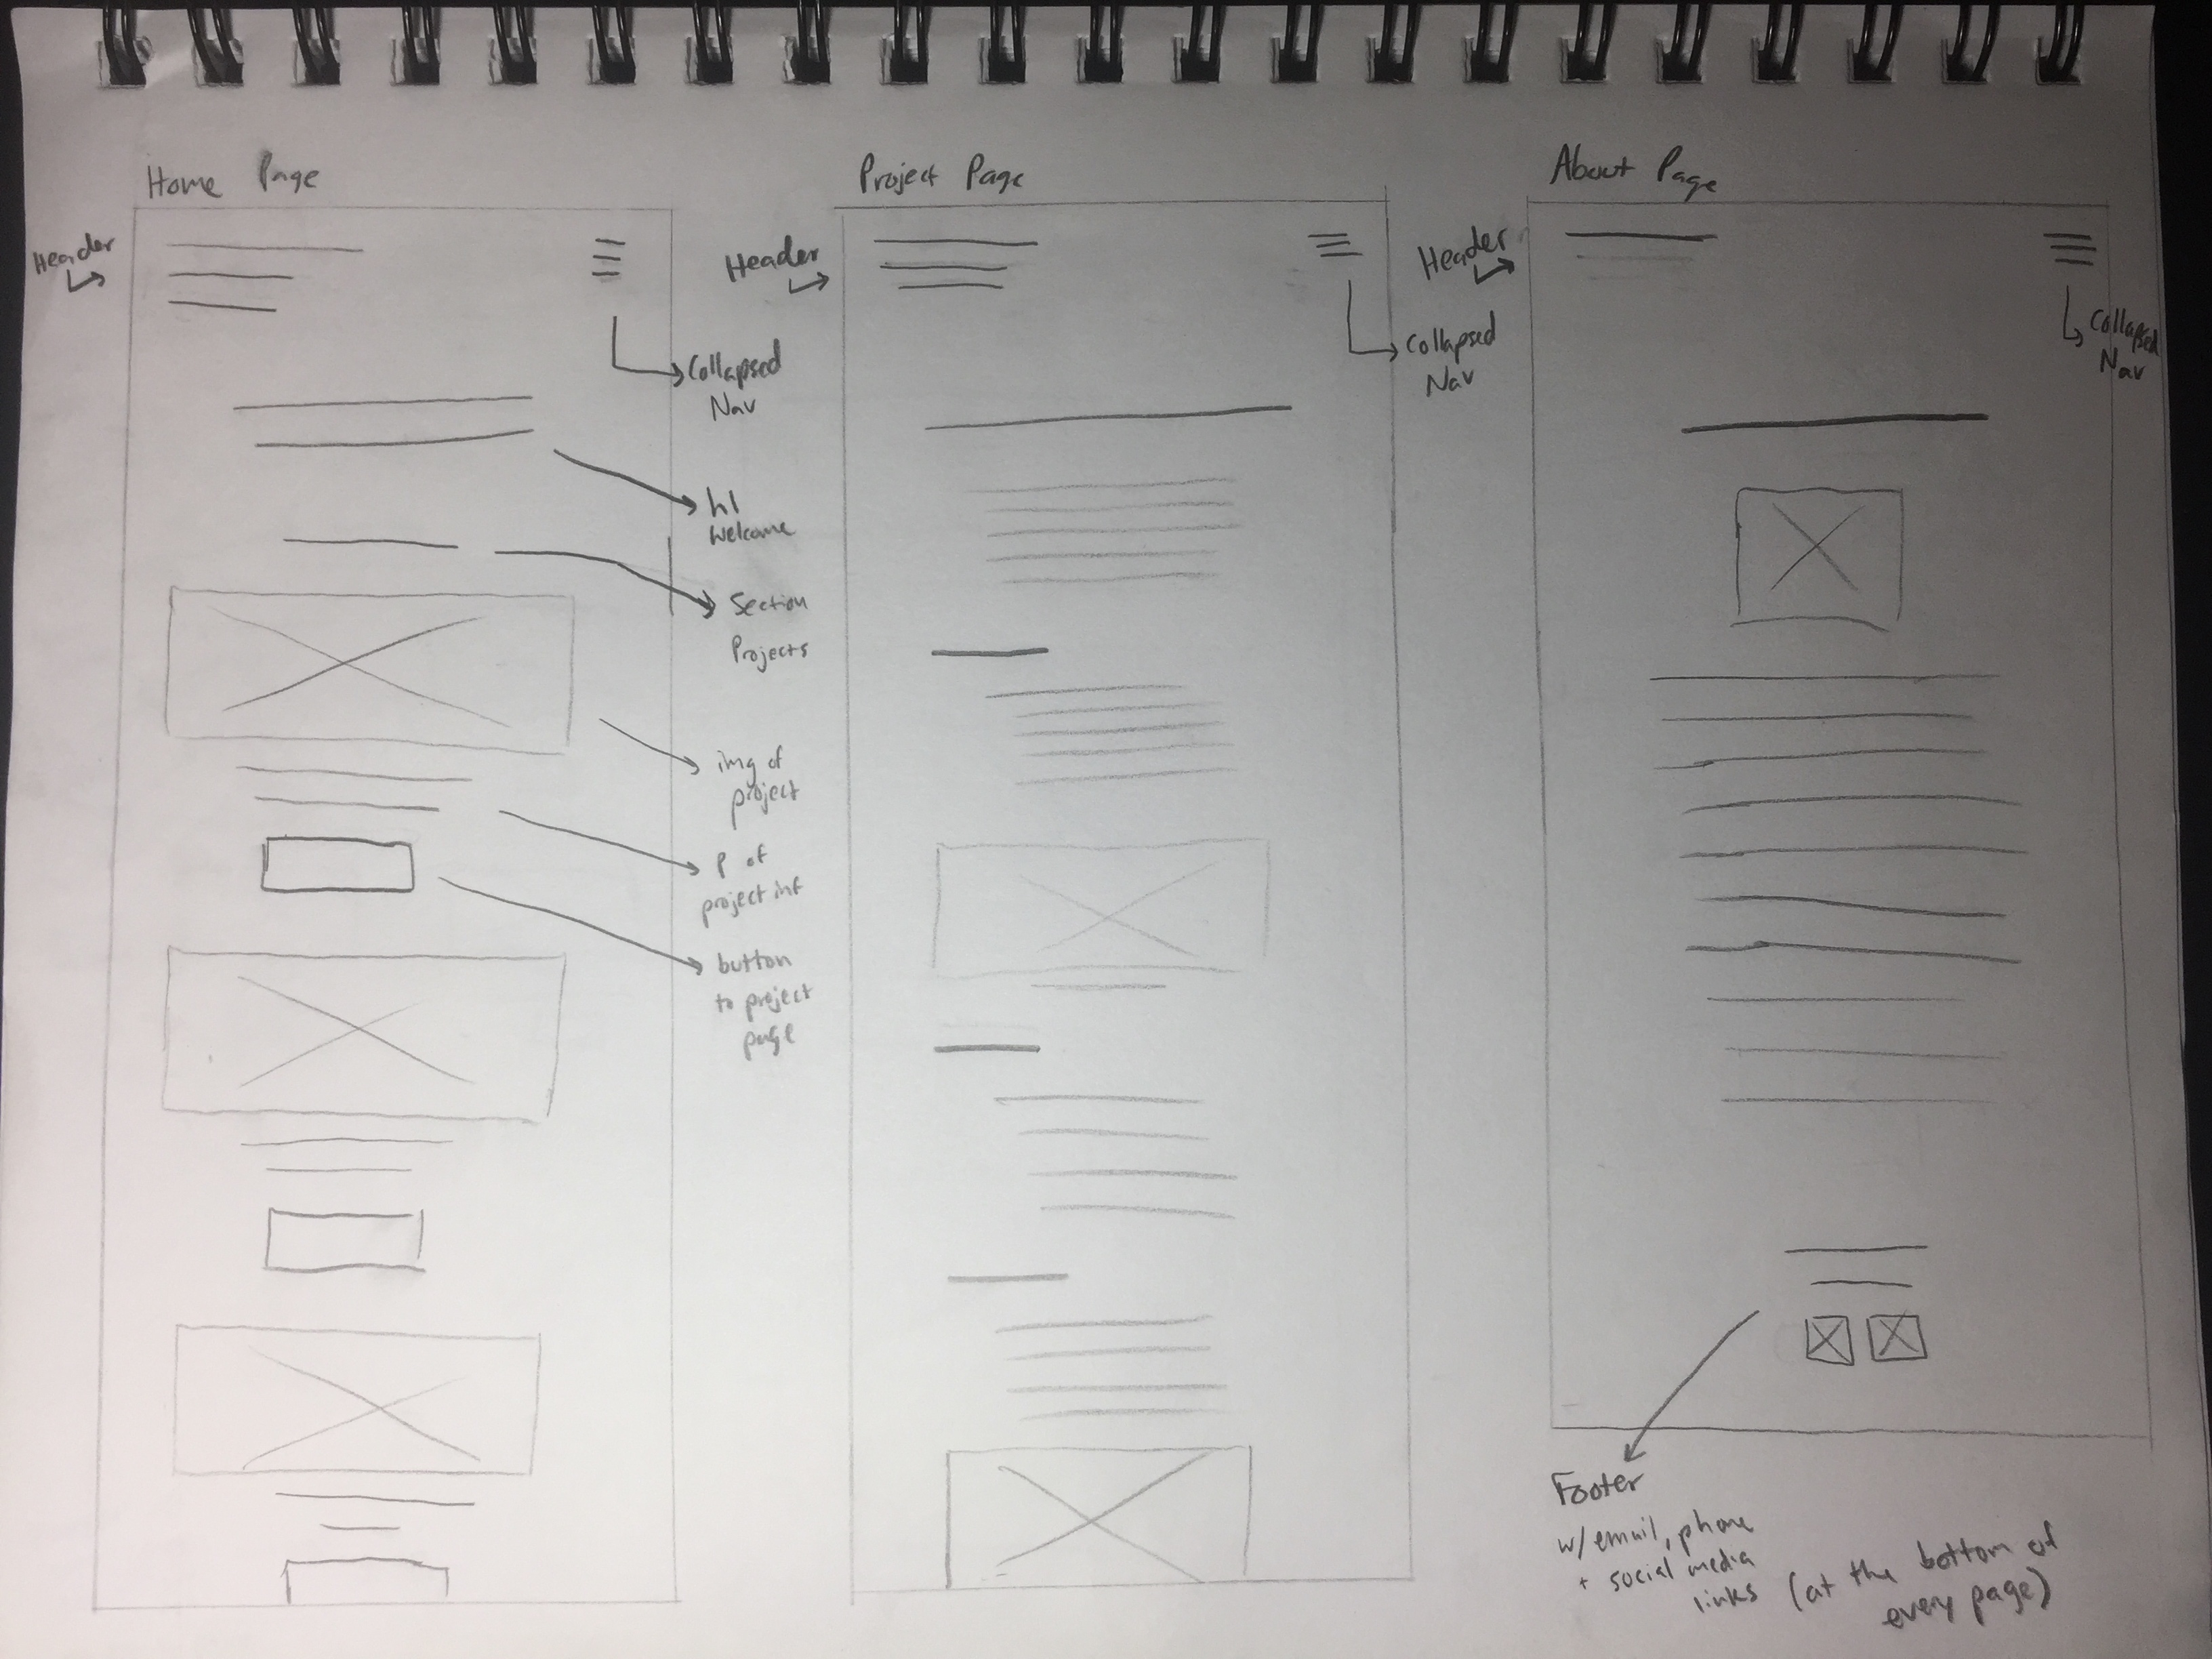 Home Page
Header
Collapsed
Nav
h1
Welcome
Section
Projects
img of
project
p of
project inf
button
to project
page
Project Page
Header
Collapsed
Nav
About Page
Header
Collapsed
Nav
Footer
w/email, phone
+ social media
links (at the bottom of
every page)